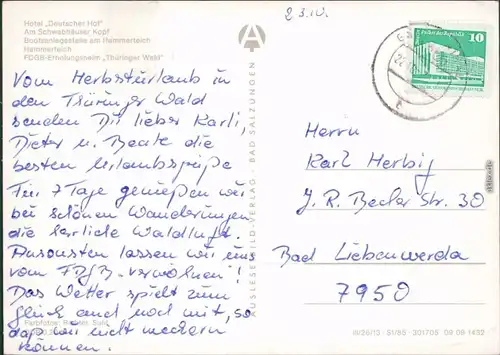 Hotel „Deutscher Hof"
Am Schwabhäuser Kopf
Bootsanlegestelle am Hammerteich
Hammerteich
FDGB-Erholungsheim „Thüringer Wald"
23.10.
10
Vom Herbsturlaub in
den Thüringer Wald
senden Dir lieber Karli,
Dieter u. Beate die
besten Urlaubsgrüße
Für 7 Tage genießen wir
bei schönen Wanderungen
die herrliche Waldluft.
Ansonsten lassen wir uns
vom FDGB verwöhnen!
Das Wetter spielt zum
Glück auch noch mit, so
daß wir nicht meckern
können.
AUSLESE-BILD-VERLAG · BAD SALZUNGEN
Herrn
Karl Herbig
J. R. Becher Str. 30
Bad Liebenwerda
7950
Farbfotos: Suhl
III/26/13 · 51/85 301705 09 09 1432